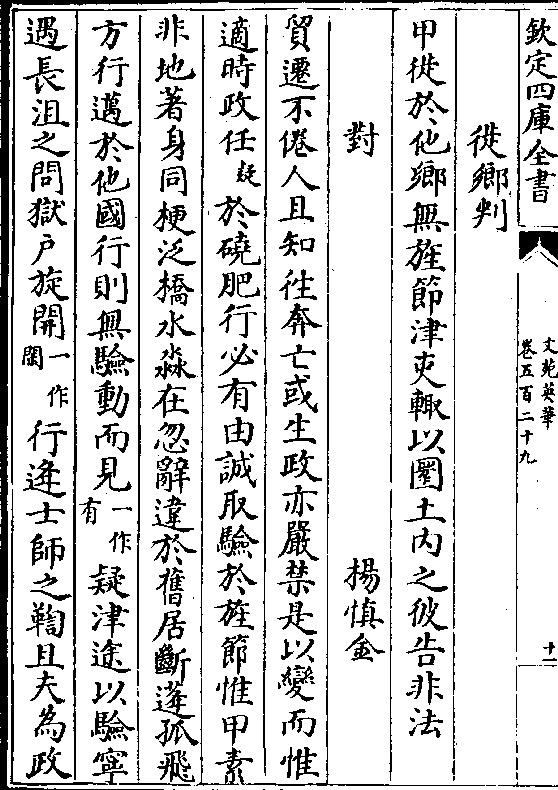 欽定四庫全書
文苑英華
卷五百二十九
十一
徙鄉判
甲徙於他鄉無旌節津吏輙以圜土内之彼告非法
對
楊慎金
貿遷不倦人且知徃奔亡或生政亦嚴禁是以變而惟
適時政任疑於磽肥行必有由誠取驗於旌節惟甲素
非地著身同梗泛橋水淼在忽辭違於舊居斷蓬孤飛
方行邁於他國行則無驗動而見一作有疑津途以驗寧
遇長沮之問獄户旋開一作闗行逢士師之鞫且夫為政